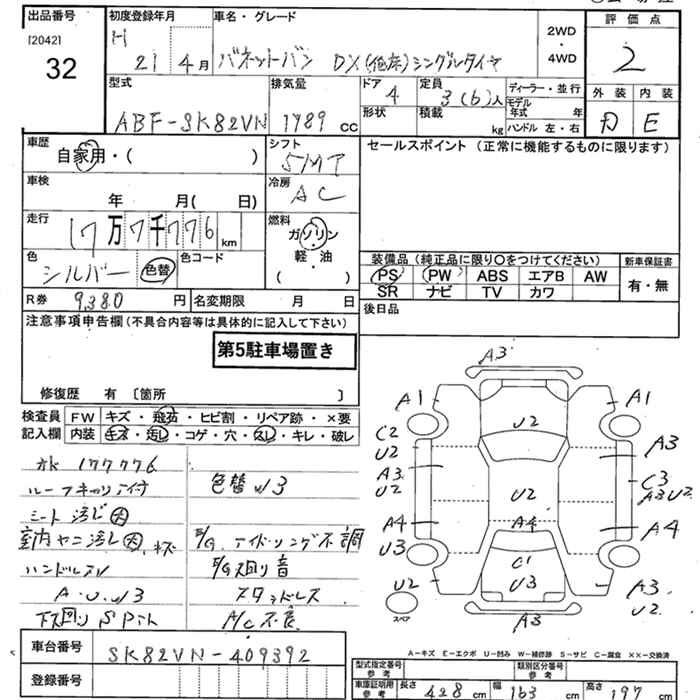 出品番号
[2042]
32
初度登録年月
H
21 4月
車名・グレード
バネットバン DX(低床)シングルタイヤ
2WD
・
4WD
評価点
2
外装 内装
D E
型式
ABF-SK82VN
排気量
1789 cc
ドア
4
形状
定員
3(6)人
積載
kg
ディーラー・並行
モデル年式 年
ハンドル 左・右
車歴
自家用・( )
シフト
5MT
車検
年 月( 日)
冷房
AC
走行
17万7千776km
燃料
ガソリン
軽・油
( )
色
シルバー 色替
色コード
R券 9,380 円
名変期限 月 日
セールスポイント(正常に機能するものに限ります)
装備品(純正品に限り〇をつけてください)
PS PW ABS エアB AW
SR ナビ TV カワ
新車保証書
有・無
後日品
注意事項申告欄(不具合内容等は具体的に記入して下さい)
第5駐車場置き
修復歴 有〔箇所 〕
検査員
記入欄
FW キズ・飛石・ヒビ割・リペア跡・×要
内装 キズ・汚し・コゲ・穴・スレ・キレ・破レ
177776
ルーフキャリア付
シート汚レ大
室内ヤニ汚レ大、キズ
ハンドルスレ
A・U・W3
下廻りSPホト
色替W3
E/G アイドリング不調
E/G廻り音
スタッドレス
A/C不良
A3
A1
A1
U2
C2
U2
A3
A3
U2
C3
A3U2
U2
A4
A4
A4
U3
C1
U3
U2
スペア
A3
U2
A3
車台番号
SK82VN-409392
登録番号
A-キズ E-エクボ U-凹み W-補修跡 S-サビ C-腐食 ××-交換済
型式指定番号
参考
類別区分番号
参考
車庫証明用
参考
長さ 428 cm
幅 163 cm
高さ 197 cm